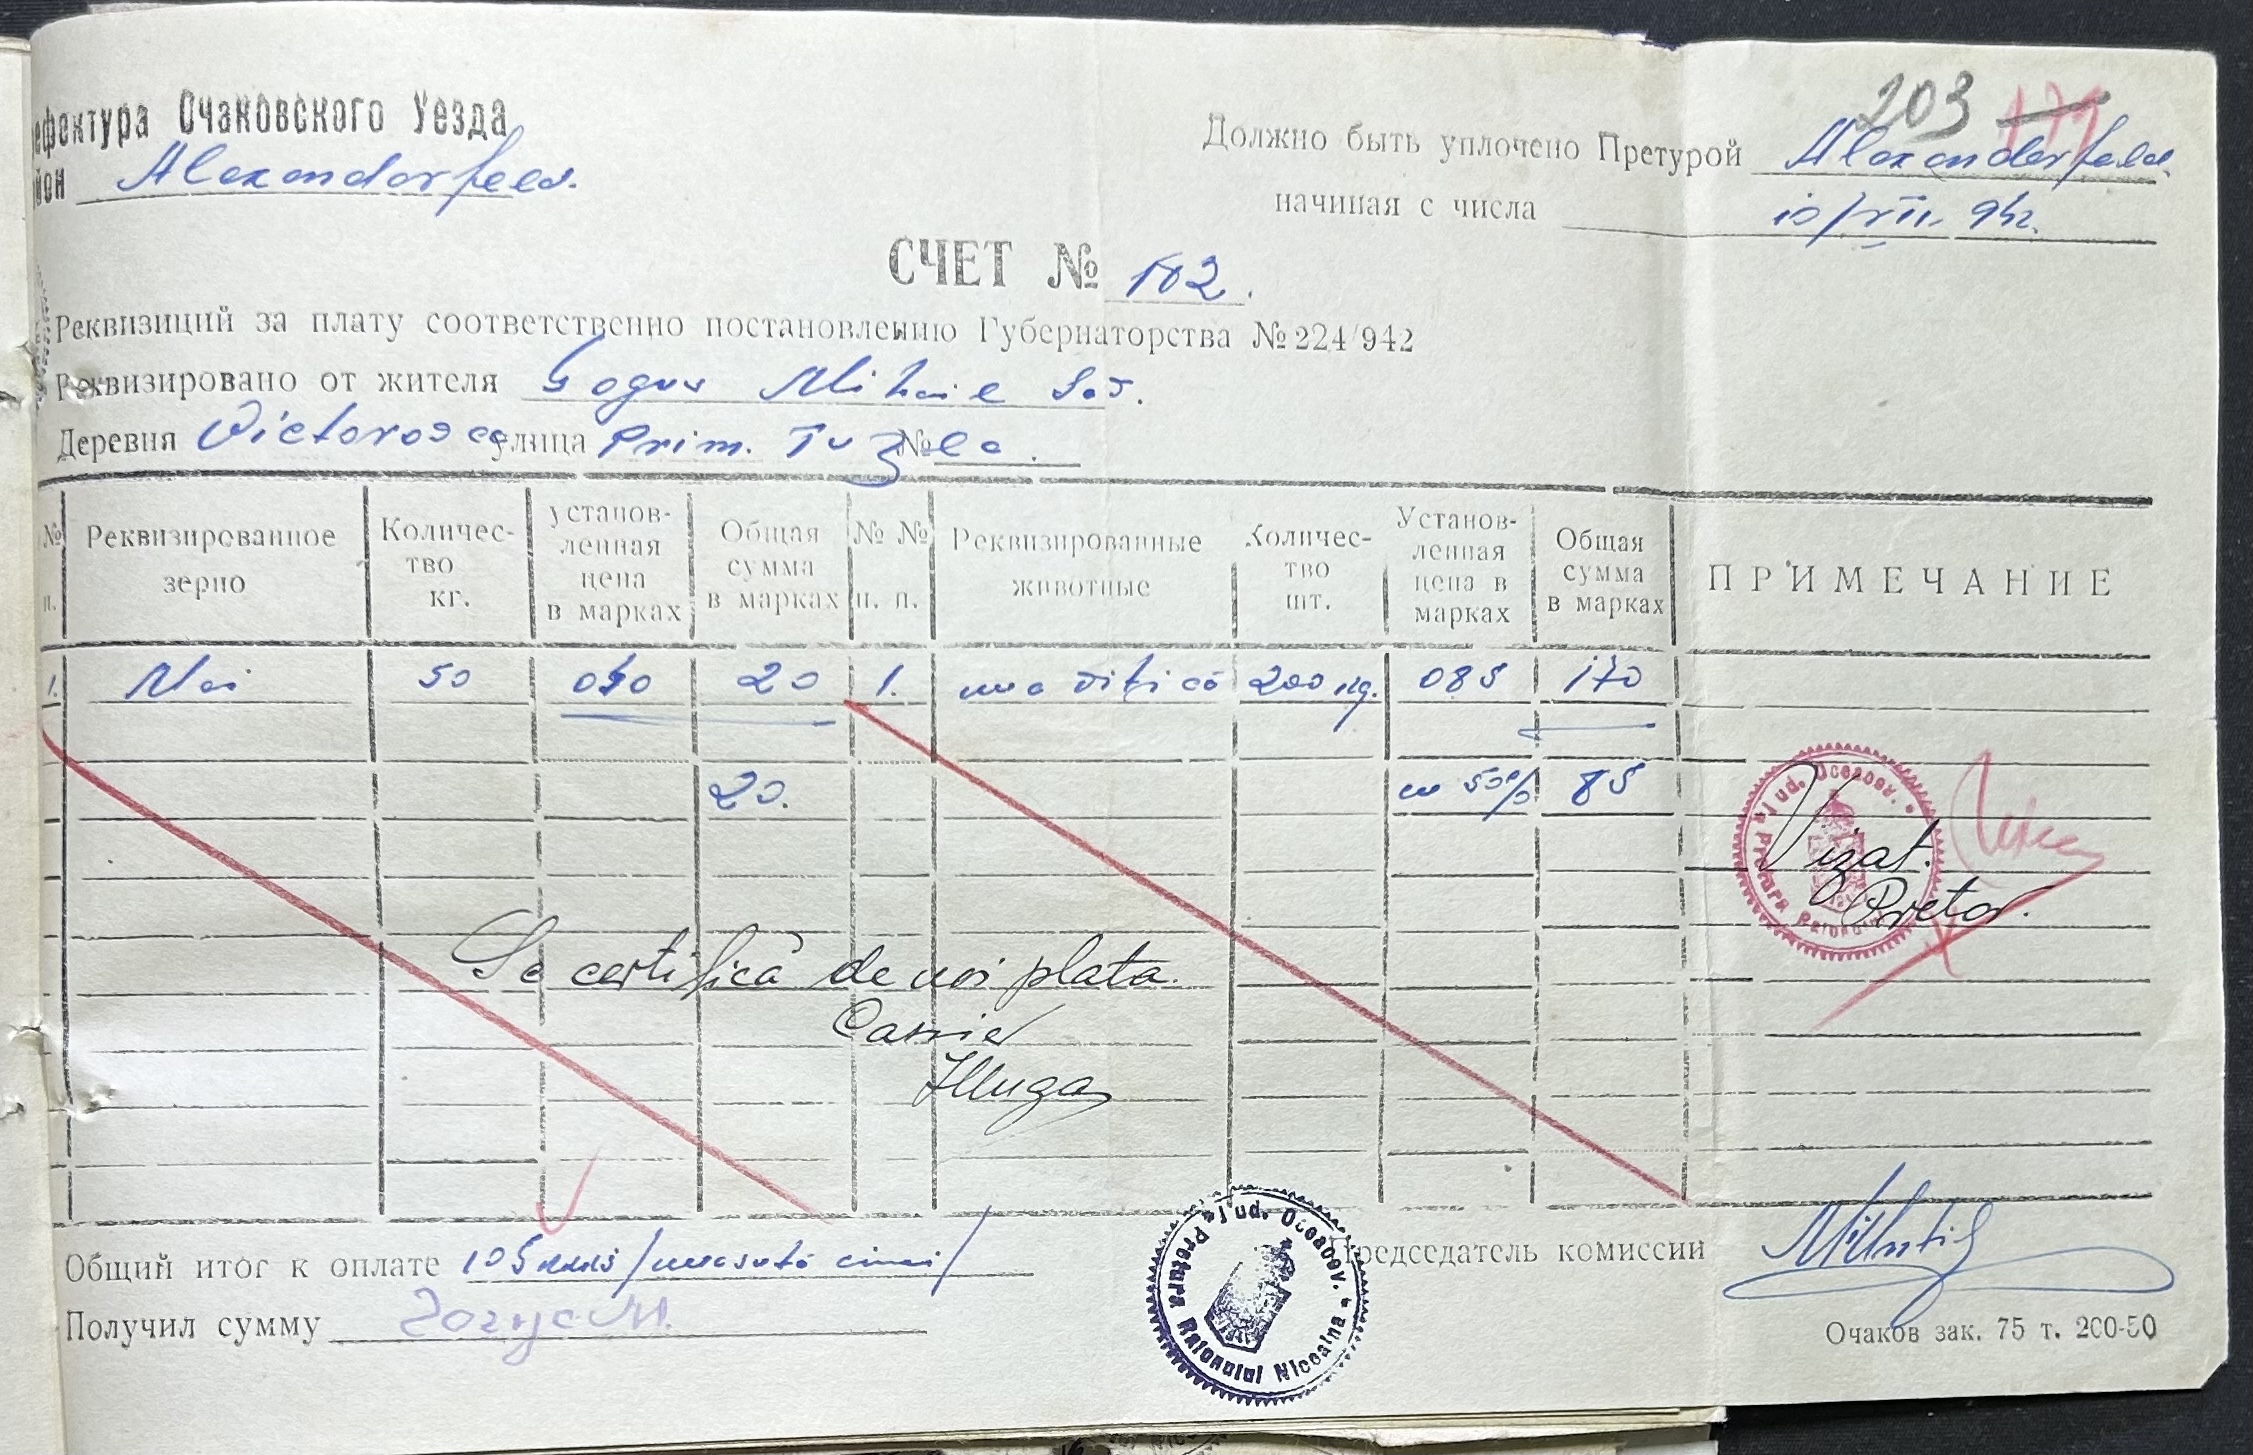 203 171
ефектура Очаковского Уезда
йон Alexanderfeld.
Должно быть уплочено Претурой Alexanderfeld.
начиная с числа 10/VII. 942.
СЧЕТ № 102.
Реквизиций за плату соответственно постановлению Губернаторства № 224/942
Реквизировано от жителя Gogus Mihail
Деревня улица Prim. Tuzla. №
№ п. Реквизированное зерно Количество кг. Установленная цена в марках Общая сумма в марках № № п. п. Реквизированные животные Количество шт. Установленная цена в марках Общая сумма в марках ПРИМЕЧАНИЕ
1. Mei 50 040 20 1. una vițică 200 kg. 085 170
20. 50% 85
Jud. Oceacov. Pretura Raionului
Vizat.
Pretor.
Se certifică de noi plata.
Casier
Общий итог к оплате 105 /unasută cinci/
Председатель комиссии
Jud. Oceacov. Pretura Raionului Nicoaina
Получил сумму Гогус М.
Очаков зак. 75 т. 200-50